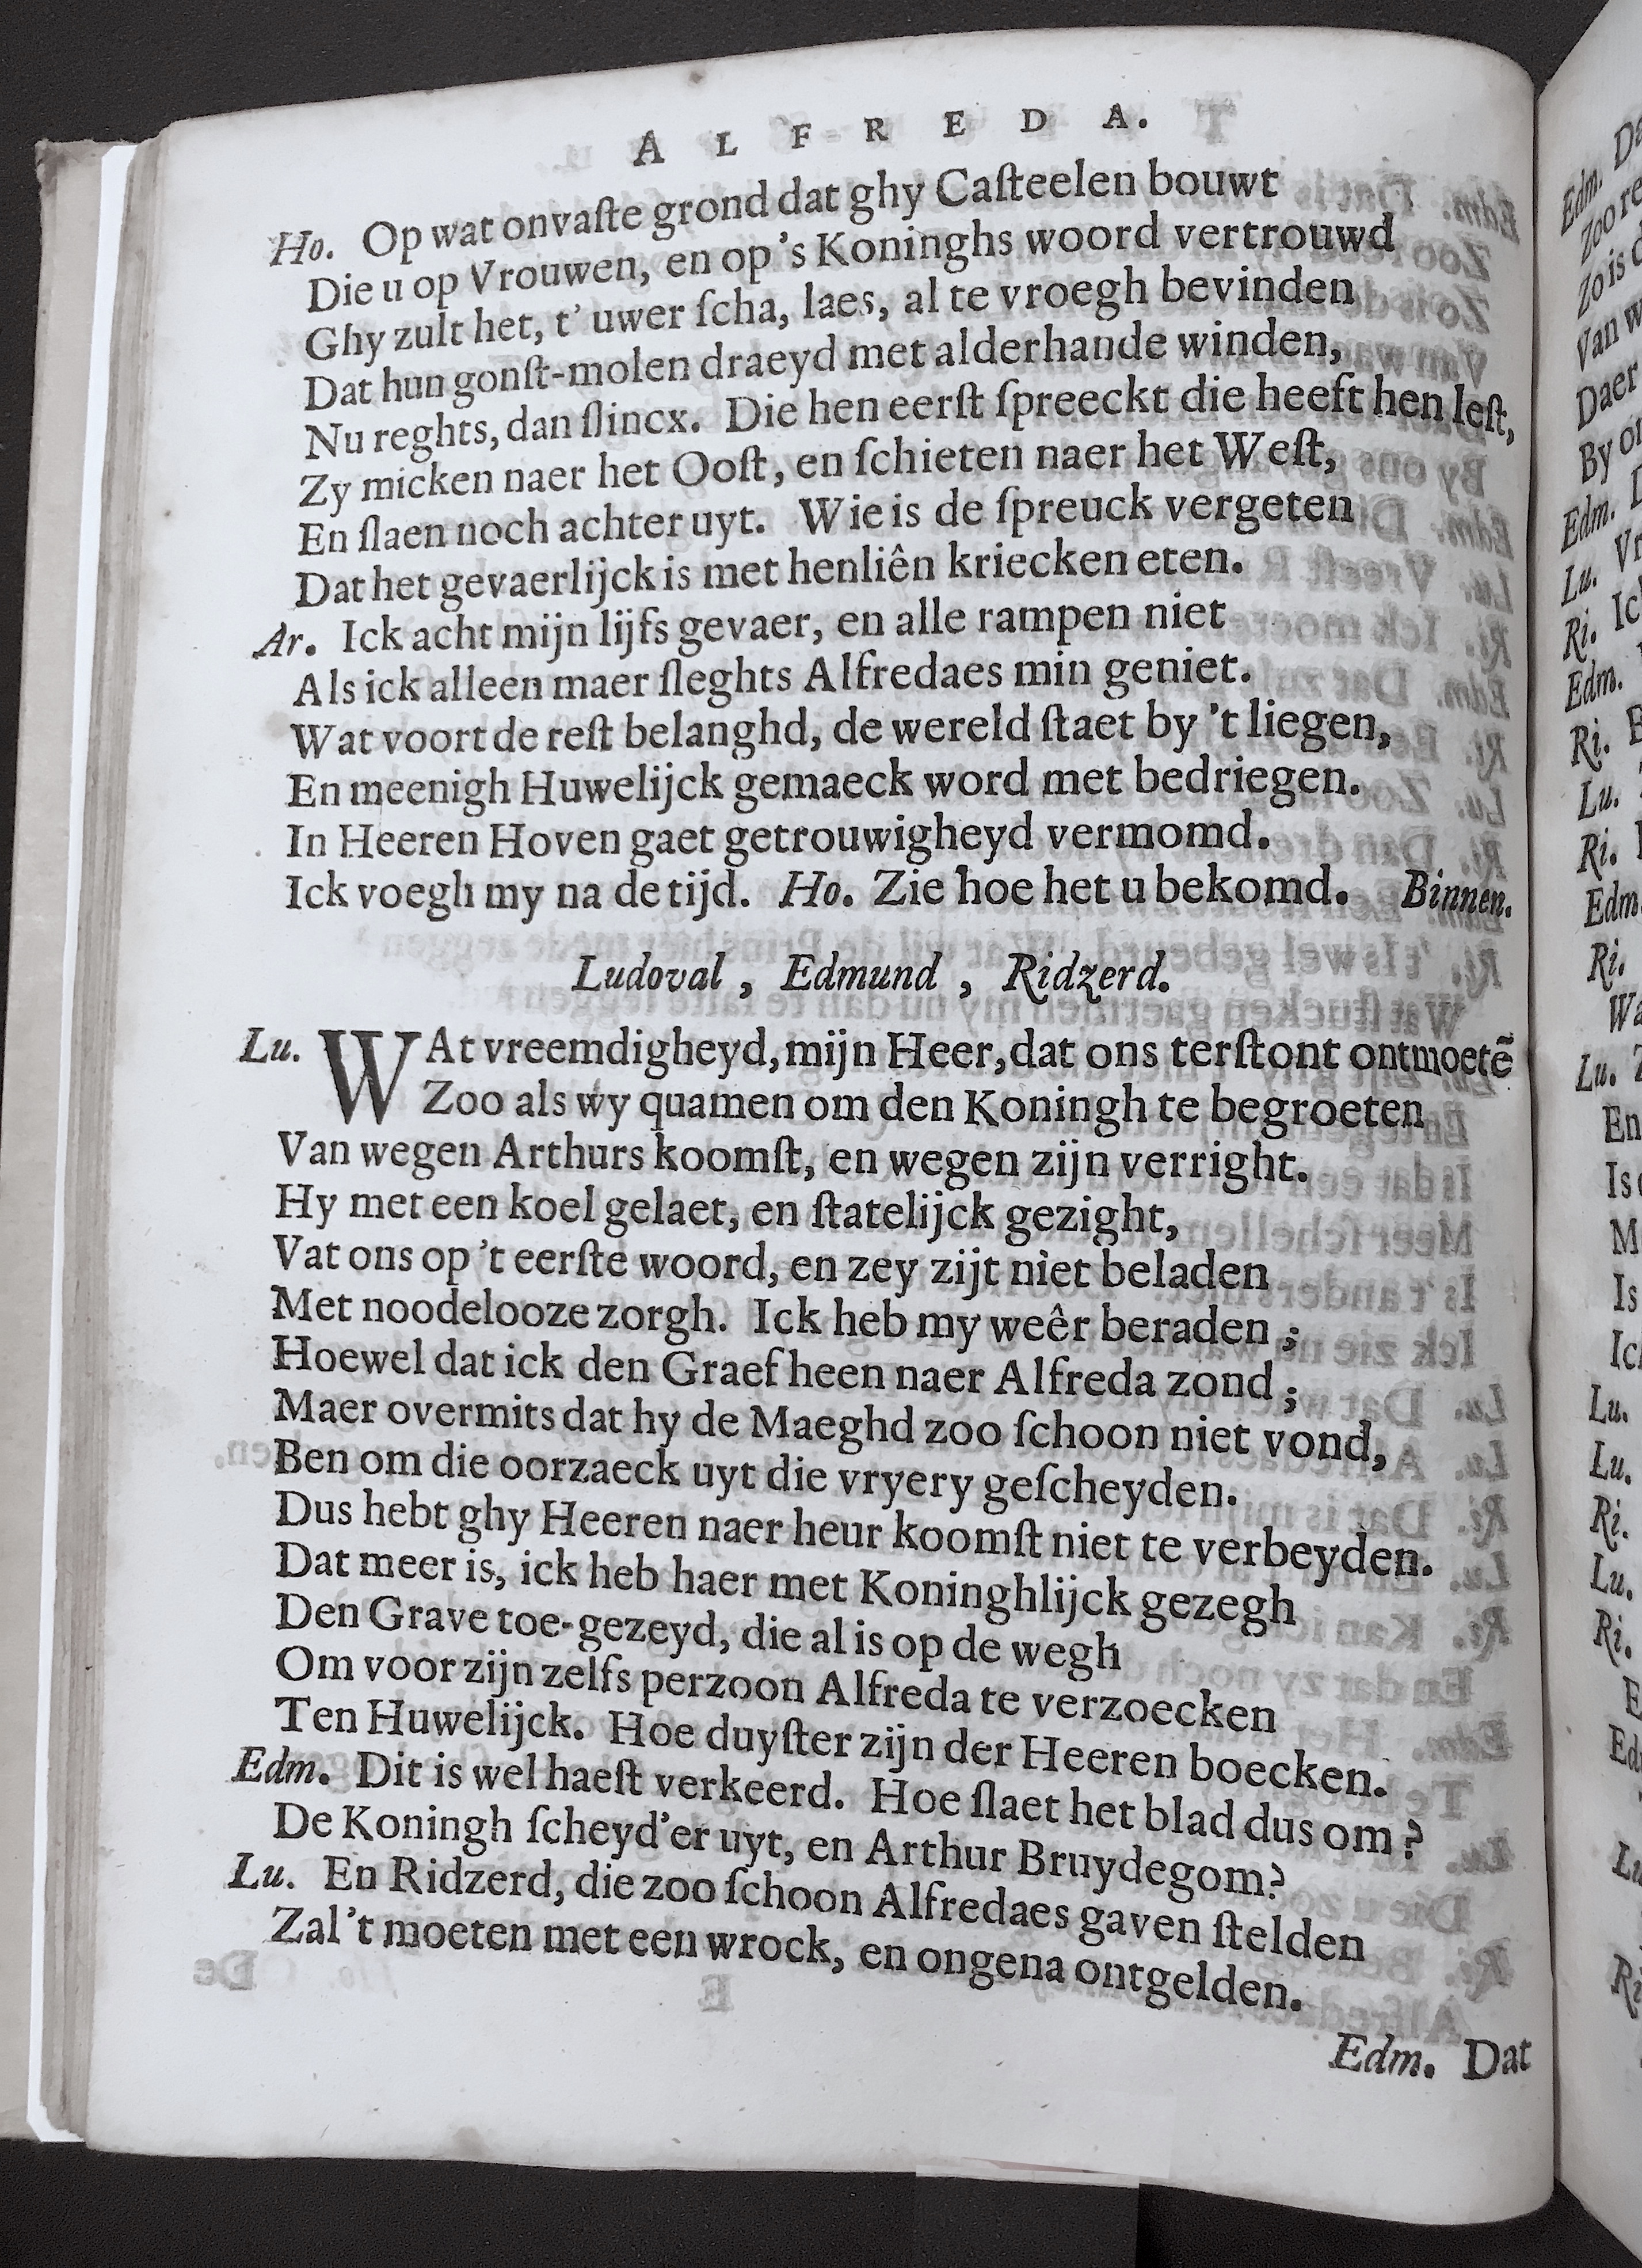 ALFREDA.
Ho. Op wat onvaſte grond dat ghy Caſteelen bouwt
Die u op Vrouwen, en op 's Koninghs woord vertrouwd
Ghy zult het, t' uwer ſcha, laes, al te vroegh bevinden
Dat hun gonſt-molen draeyd met alderhande winden,
Nu reghts, dan ſlincx. Die hen eerſt ſpreeckt die heeft hen leſt,
Zy micken naer het Ooſt, en ſchieten naer het Weſt,
En ſlaen noch achter uyt. Wie is de ſpreuck vergeten
Dat het gevaerlijck is met henliên kriecken eten.
Ar. Ick acht mijn lijfs gevaer, en alle rampen niet
Als ick alleen maer ſleghts Alfredaes min geniet.
Wat voort de reſt belanghd, de wereld ſtaet by 't liegen,
En meenigh Huwelijck gemaeck word met bedriegen.
In Heeren Hoven gaet getrouwigheyd vermomd.
Ick voegh my na de tijd. Ho. Zie hoe het u bekomd. Binnen.
Ludoval, Edmund, Ridzerd.
Lu. WAt vreemdigheyd, mijn Heer, dat ons terſtont ontmoetẽ
Zoo als wy quamen om den Koningh te begroeten
Van wegen Arthurs koomſt, en wegen zijn verright.
Hy met een koel gelaet, en ſtatelijck gezight,
Vat ons op 't eerſte woord, en zey zijt niet beladen
Met noodelooze zorgh. Ick heb my weêr beraden;
Hoewel dat ick den Graef heen naer Alfreda zond;
Maer overmits dat hy de Maeghd zoo ſchoon niet vond,
Ben om die oorzaeck uyt die vryery geſcheyden.
Dus hebt ghy Heeren naer heur koomſt niet te verbeyden.
Dat meer is, ick heb haer met Koninghlijck gezegh
Den Grave toe-gezeyd, die al is op de wegh
Om voor zijn zelfs perzoon Alfreda te verzoecken
Ten Huwelijck. Hoe duyſter zijn der Heeren boecken.
Edm. Dit is wel haeſt verkeerd. Hoe ſlaet het blad dus om?
De Koningh ſcheyd'er uyt, en Arthur Bruydegom?
Lu. En Ridzerd, die zoo ſchoon Alfredaes gaven ſtelden
Zal 't moeten met een wrock, en ongena ontgelden.
Edm. Dat